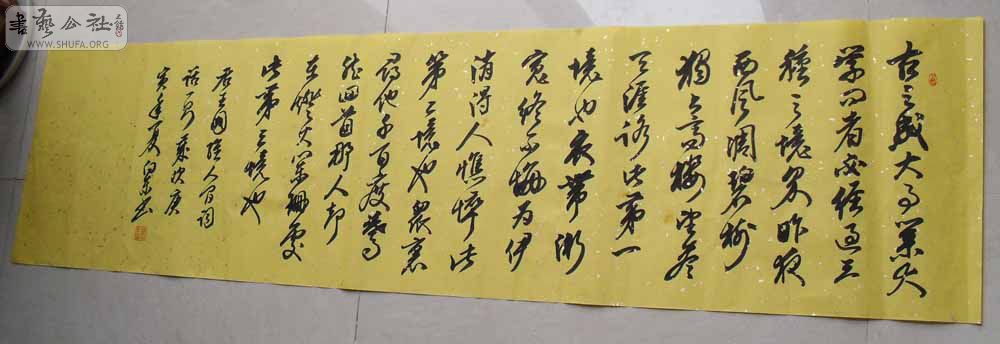 書藝公社
WWW.SHUFA.ORG
古之成大事業大
学问者必经過三
種之境界昨夜
西风凋碧树
獨上高樓望盡
天涯路此第一
境也衣帶漸
寬終不悔为伊
消得人憔悴此
第二境也衆裏
尋他千百度蓦
然回首那人却
在燈火闌珊處
此第三境也
王国維人间词
话一则 次庚
寅年夏